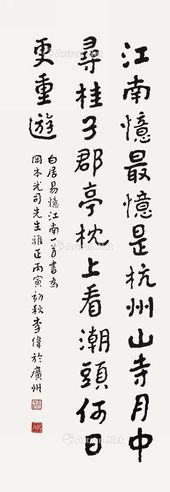 江南憶最憶是杭州山寺月中
尋桂子郡亭枕上看潮頭何日
更重遊
白居易憶江南一首書為
岡本光司先生雅正丙寅初秋李偉於廣州